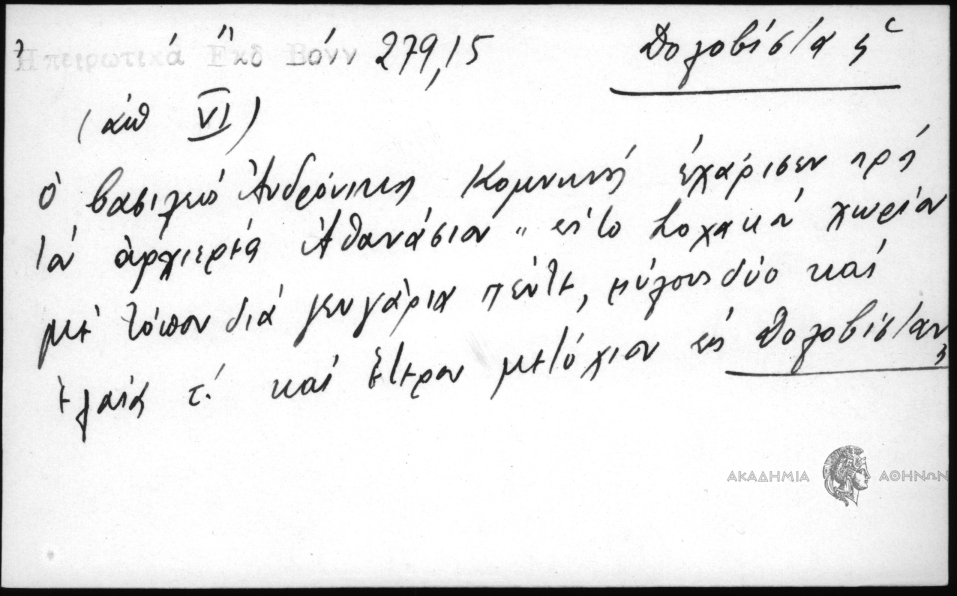 Ἠπειρωτικά Ἔκδ Βόνν 279,15
Δολοβίστα ἡ
(ἀπ VI)
Ὁ βασιλεύς Ἀνδρόνικος Κομνηνός ἐχάρισεν πρός
τόν ἀρχιερέα Ἀθανάσιον " εἰς τό χωρίον
μέ τόπον διά ζευγάρια πέντε, μύλους δύο καί
ἐλαίας τ. καί ἕτερον μετόχιον εἰς Δολοβίσταν
ΑΚΑΔΗΜΙΑ ΑΘΗΝΩΝ